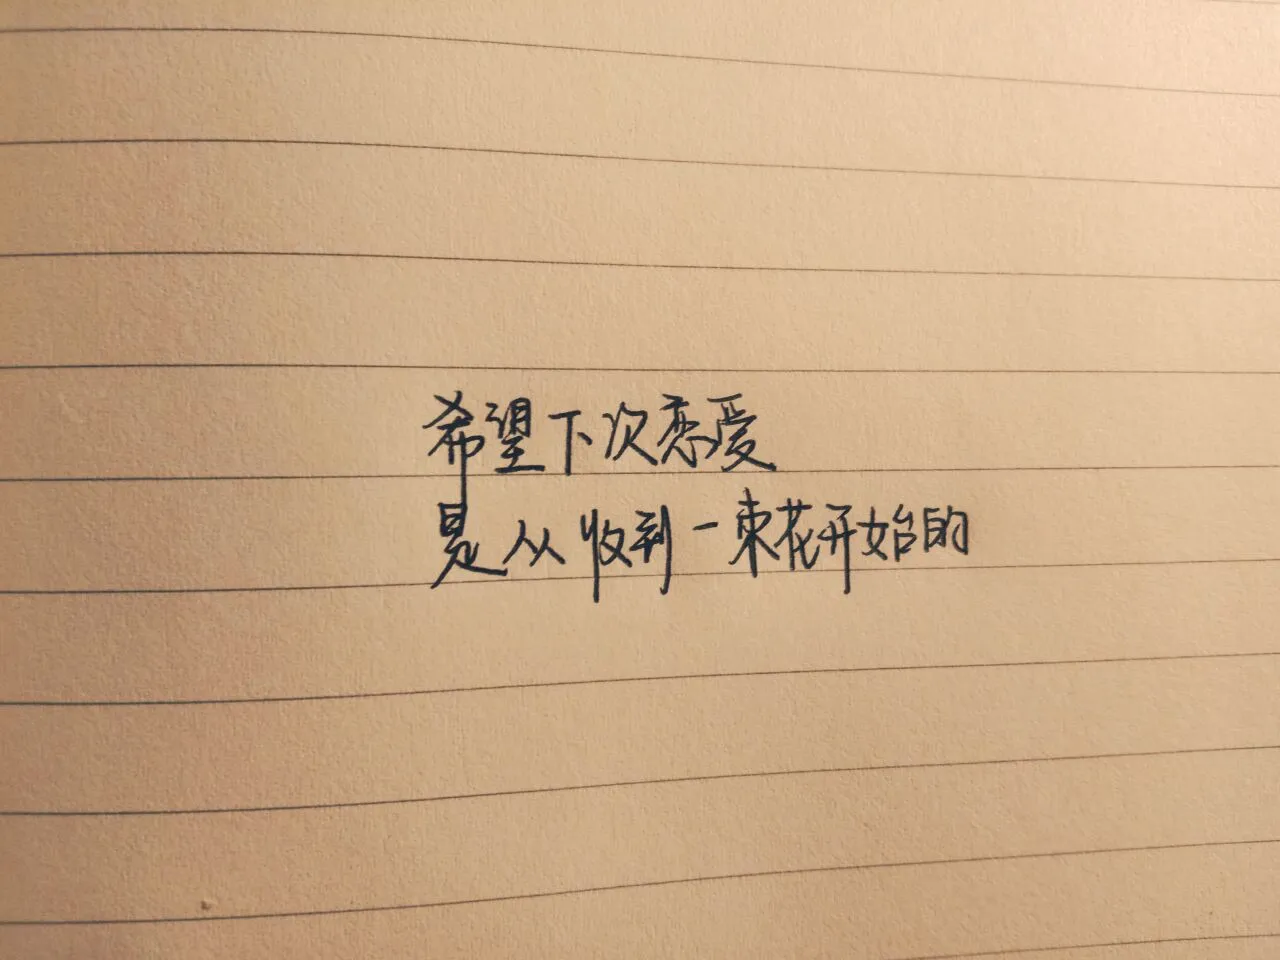 希望下次恋爱
是从收到一束花开始的